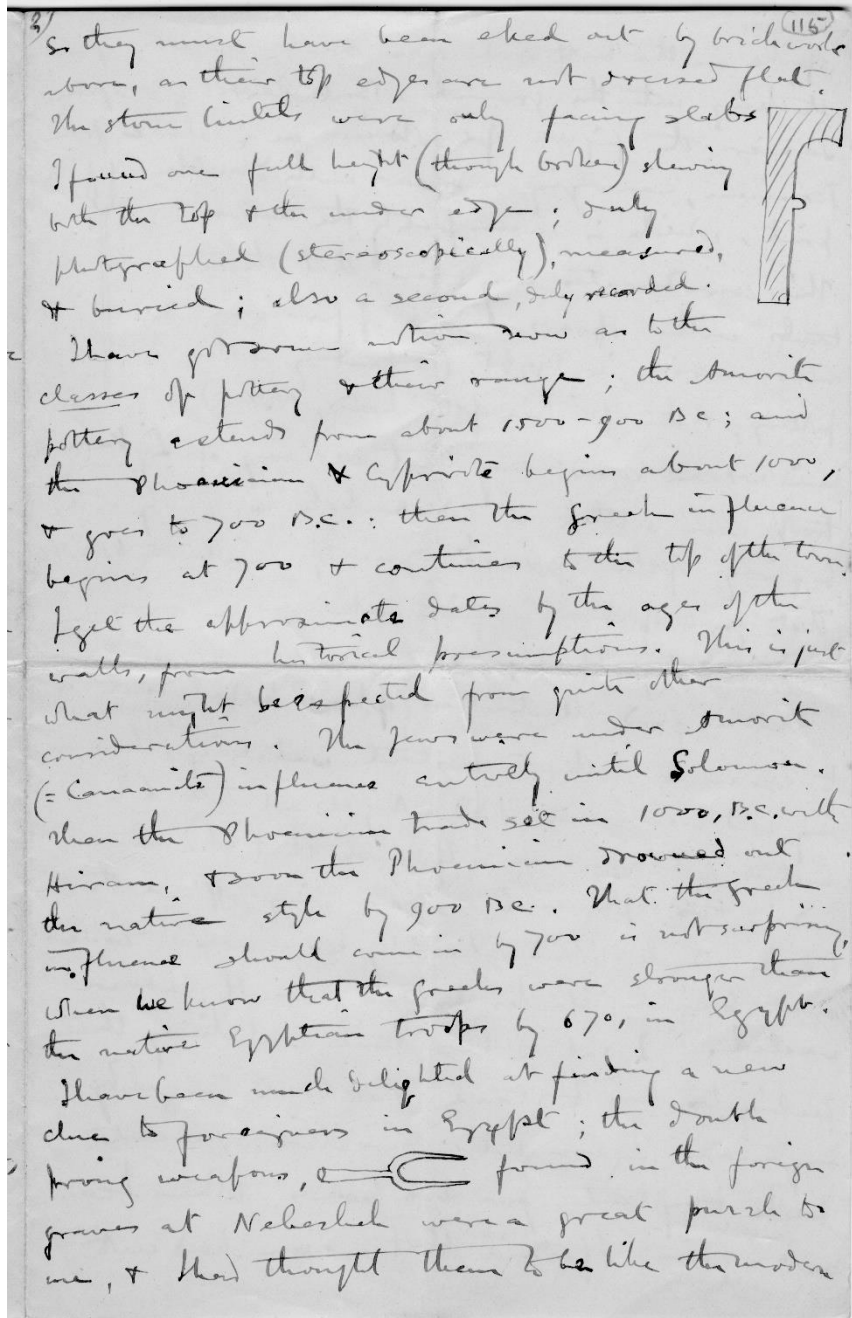 3)
115
so they must have been eked out by brickwork
above, as their top edges are not dressed flat.
The stone lintels were only facing slabs
I found one full height (though broken) shewing
both the top & the under edge; duly
photographed (stereoscopically), measured,
& buried; also a second, duly recorded.
I have got some notion now as to the
classes of pottery & their range; the Amorite
pottery extends from about 1500-900 BC; and
the Phoenician & Cypriote begins about 1000,
& goes to 700 B.C.: then the Greek influence
begins at 700 & continues to the top of the town.
I get the approximate dates by the ages of the
walls, from historical presumptions. This is just
what might be expected from quite other
considerations. The Jews were under Amorite
(= Canaanite) influence entirely until Solomon.
then the Phoenician trade set in 1000, B.C. with
Hiram, & soon the Phoenician drowned out
the native style by 900 BC. That the Greek
influence should come in by 700 is not surprising,
when we know that the Greeks were stronger than
the native Egyptian troops by 670, in Egypt.
I have been much delighted at finding a new
clue to foreigners in Egypt; the double
prong weapons, found in the foreign
graves at Nebesheh were a great puzzle to
me, & I had thought them to be like the modern